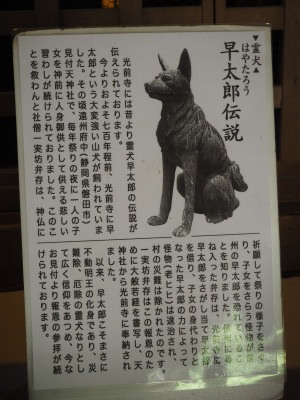 ▼霊犬▲
はやたろう
早太郎伝説
光前寺には昔より霊犬早太郎の伝説が
伝えられております。
今よりおよそ七百年程前、光前寺に早
太郎という大変強い山犬が飼われていま
した。その頃遠州府中(静岡県磐田市)
見付天神社で、毎年祭りの夜に一人の子
女を神前に人身御供として供える悲しい
習わしが続けられておりました。このこ
とを救わんと社僧一実坊弁存は、神仏に
祈願して祭りの様子をさぐ
り、子女をさらう怪物が信
州の早太郎を恐れているこ
とを知りました。信州に尋
ね入った弁存は、光前寺に
早太郎をさがし当て早太郎
を借り、子女の身代わりと
なった早太郎の力によって
怪物(老ヒヒ)は退治され、
村の災難は除かれたのです。
一実坊弁存はこの報恩のた
めに大般若経を書写し、天
神社から光前寺に奉納され
ました。
以来、早太郎こそまさに
不動明王の化身であり、災
難除、厄除の霊犬なりとし
て広く信仰をあつめ、今な
お見付より報恩の参拝が続
けられております。